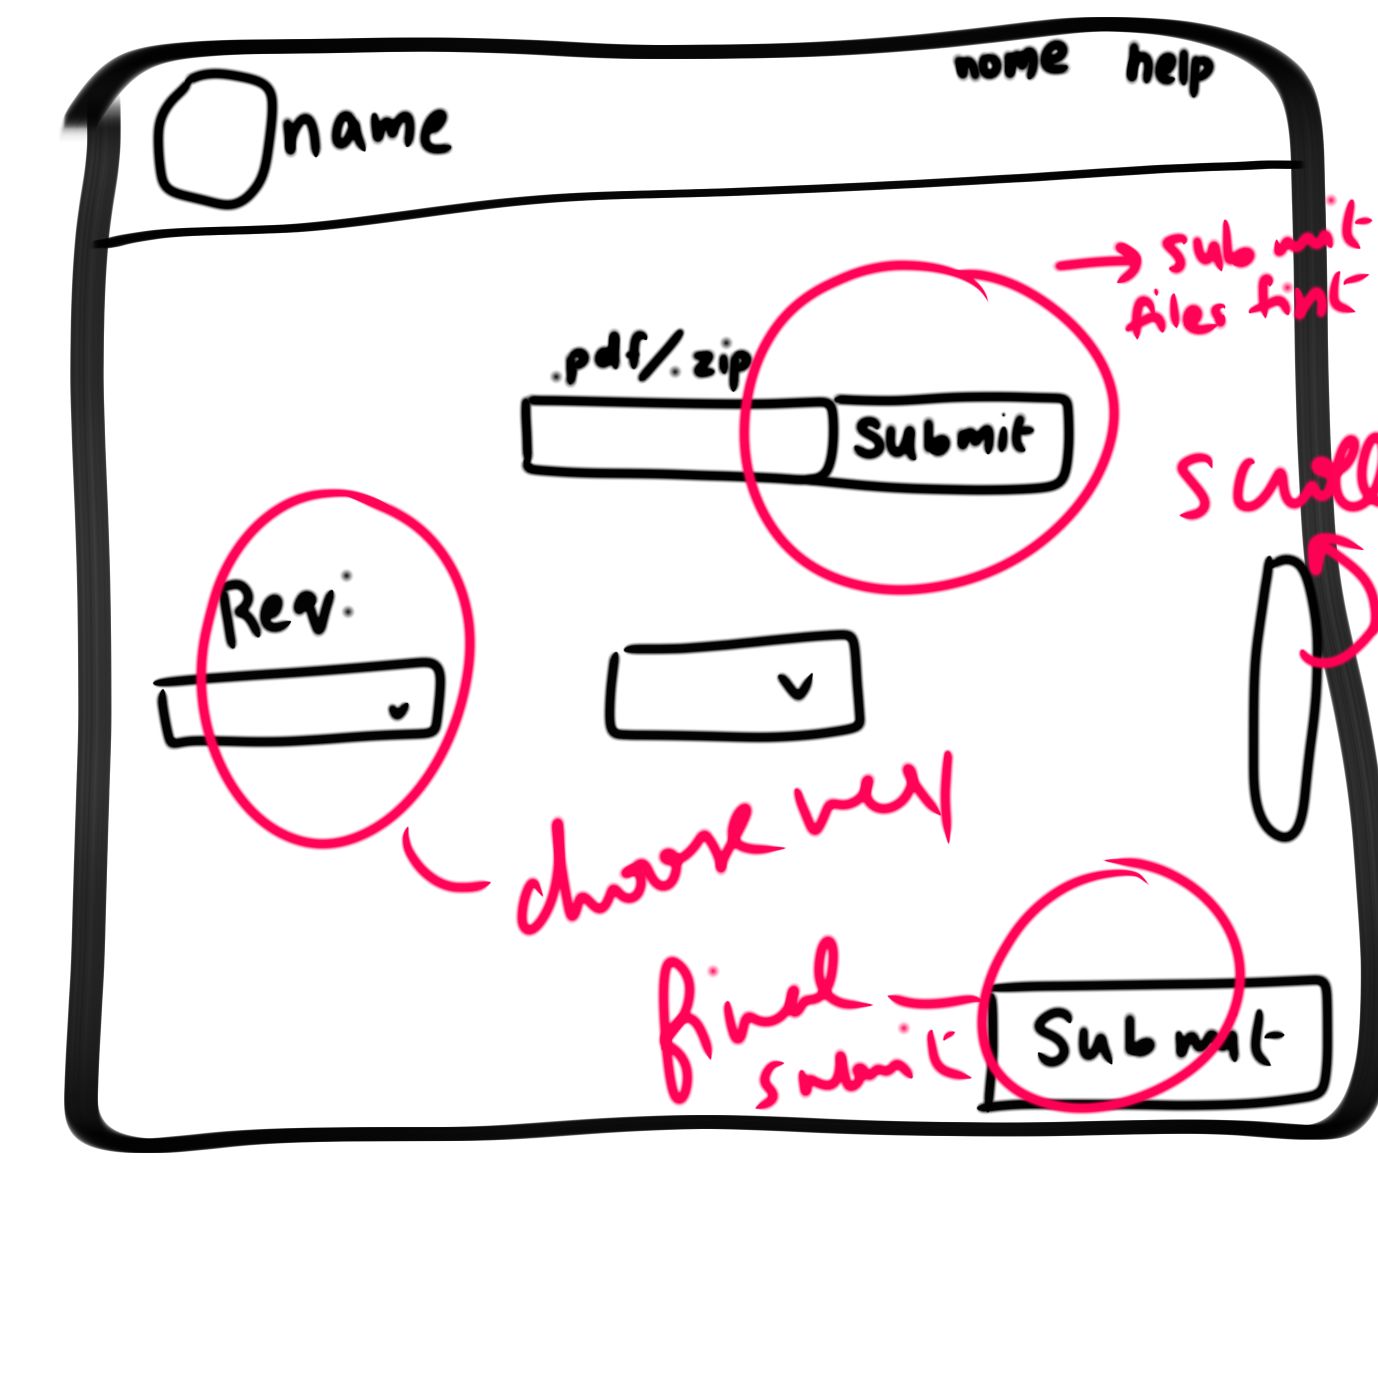 nome help
name
→ submit
files first
.pdf/.zip
Submit
scroll
Req:
choose req
final
submit
Submit